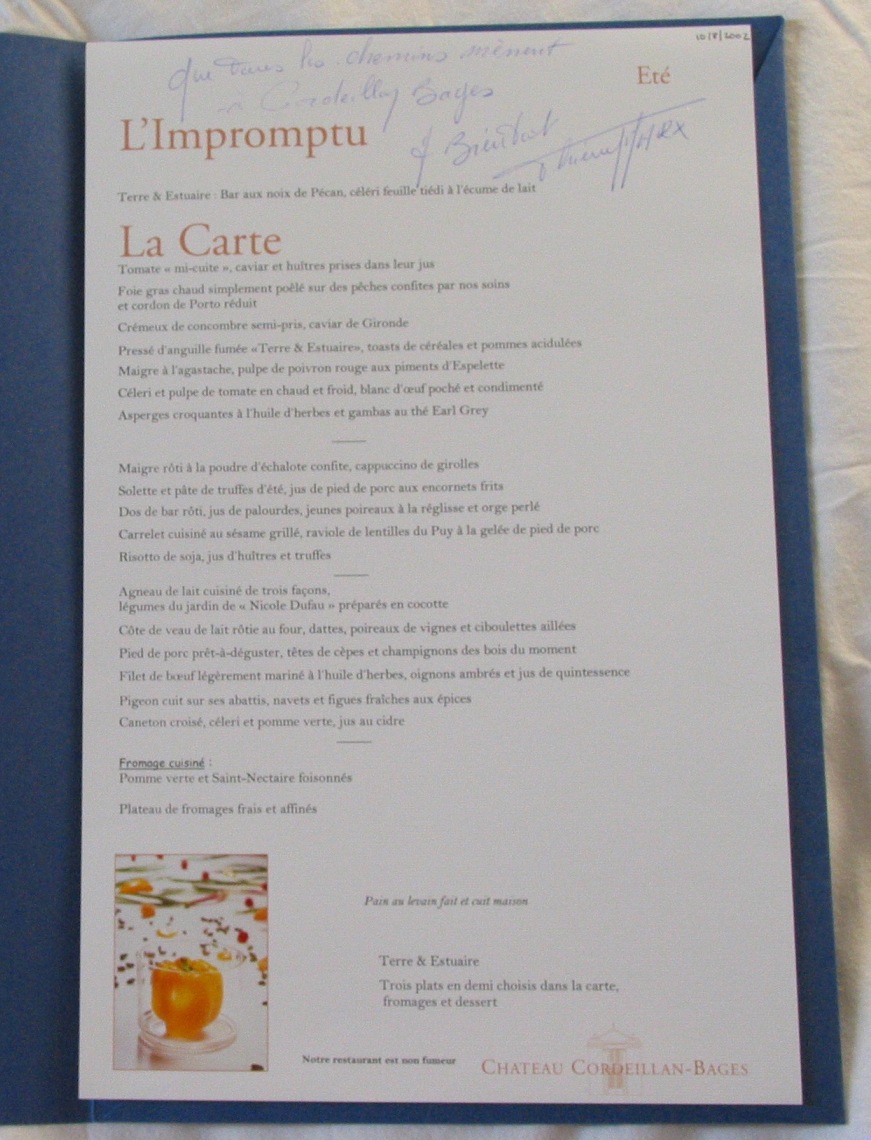 10/8/2002
que tous les chemins mènent
à Cordeillan Bages
Eté
L'Impromptu
à Bientôt
Terre & Estuaire : Bar aux noix de Pécan, céléri feuille tiédi à l'écume de lait
La Carte
Tomate « mi-cuite », caviar et huîtres prises dans leur jus
Foie gras chaud simplement poêlé sur des pêches confites par nos soins
et cordon de Porto réduit
Crémeux de concombre semi-pris, caviar de Gironde
Pressé d'anguille fumée «Terre & Estuaire», toasts de céréales et pommes acidulées
Maigre à l'agastache, pulpe de poivron rouge aux piments d'Espelette
Céleri et pulpe de tomate en chaud et froid, blanc d'œuf poché et condimenté
Asperges croquantes à l'huile d'herbes et gambas au thé Earl Grey
Maigre rôti à la poudre d'échalote confite, cappuccino de girolles
Solette et pâte de truffes d'été, jus de pied de porc aux encornets frits
Dos de bar rôti, jus de palourdes, jeunes poireaux à la réglisse et orge perlé
Carrelet cuisiné au sésame grillé, raviole de lentilles du Puy à la gelée de pied de porc
Risotto de soja, jus d'huîtres et truffes
Agneau de lait cuisiné de trois façons,
légumes du jardin de « Nicole Dufau » préparés en cocotte
Côte de veau de lait rôtie au four, dattes, poireaux de vignes et ciboulettes aillées
Pied de porc prêt-à-déguster, têtes de cèpes et champignons des bois du moment
Filet de bœuf légèrement mariné à l'huile d'herbes, oignons ambrés et jus de quintessence
Pigeon cuit sur ses abattis, navets et figues fraîches aux épices
Caneton croisé, céleri et pomme verte, jus au cidre
Fromage cuisiné :
Pomme verte et Saint-Nectaire foisonnés
Plateau de fromages frais et affinés
Pain au levain fait et cuit maison
Terre & Estuaire
Trois plats en demi choisis dans la carte,
fromages et dessert
Notre restaurant est non fumeur
CHATEAU CORDEILLAN-BAGES